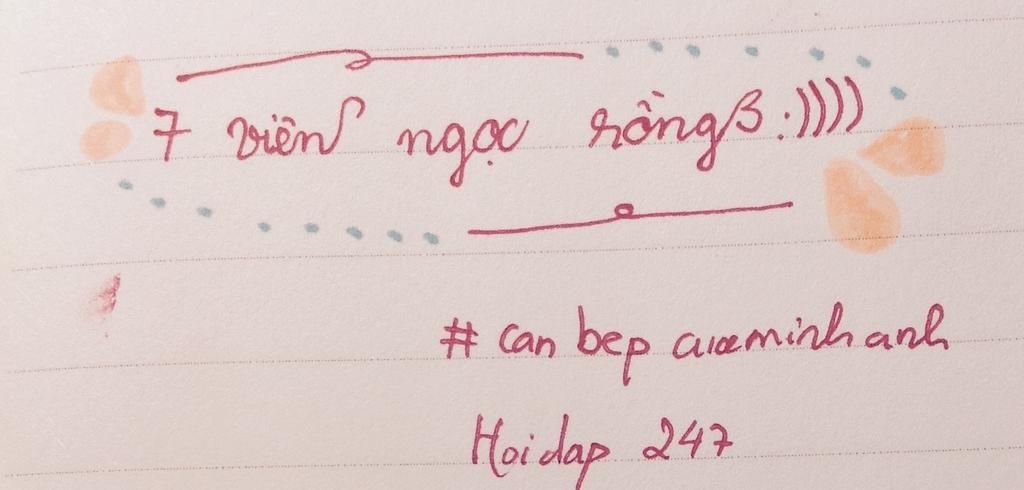 7 viên ngọc rồng :))))
# can bep cua minh anh
Hoidap 247